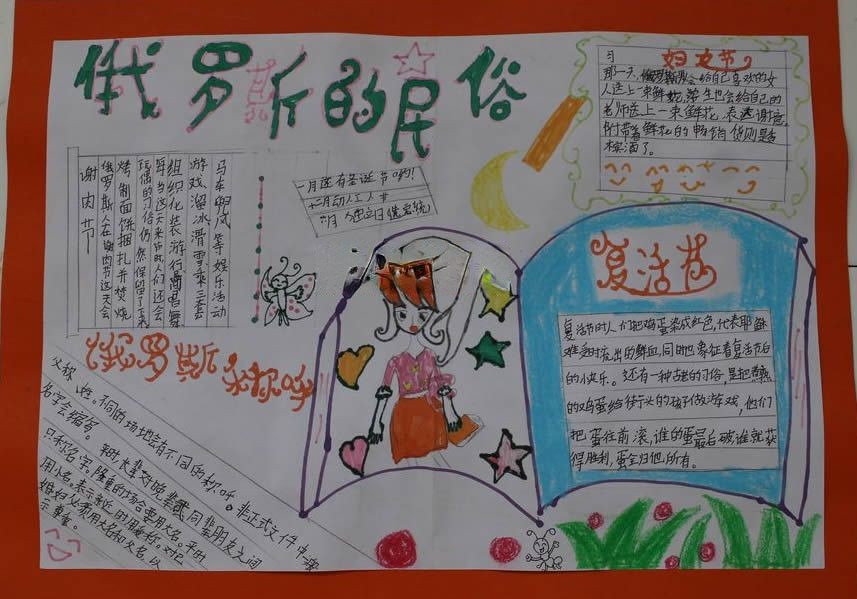 俄罗斯的民俗
谢肉节
俄罗斯人在谢肉节这天会
烤制面饼捆扎并焚烧
玩偶的习俗仍然保留了下来
每当这天来临时人们还会
组织化装游行高唱舞
游戏溜冰滑雪乘三套
马车兜风等娱乐活动
一月还有圣诞节哟!
独立日
习
妇女节
那一天,俄罗斯男会给自己喜欢的女
人送上一束鲜花,学生也会给自己的
老师送上一束鲜花,表达谢意。
附带着鲜花的畅销货则是香
槟酒了。
复活节
复活节时人们把鸡蛋染成红色,代表耶稣
受难时流出的鲜血,同时也象征着复活节后
的快乐。还有一种古老的习俗,是把煮熟
的鸡蛋给街头的孩子做游戏,他们
把蛋往前滚,谁的蛋最后破谁就获
得胜利,蛋全归他所有。
俄罗斯人称呼
父称、姓。不同的场地会有不同的称呼。非正式文件中
名字会缩写。平时,长辈对晚辈或同辈朋友之间
只称名字。隆重的场合要用大名。平时
用小名。表示亲近时用爱称。对已
婚妇女要用大名和父名,以
示尊重。